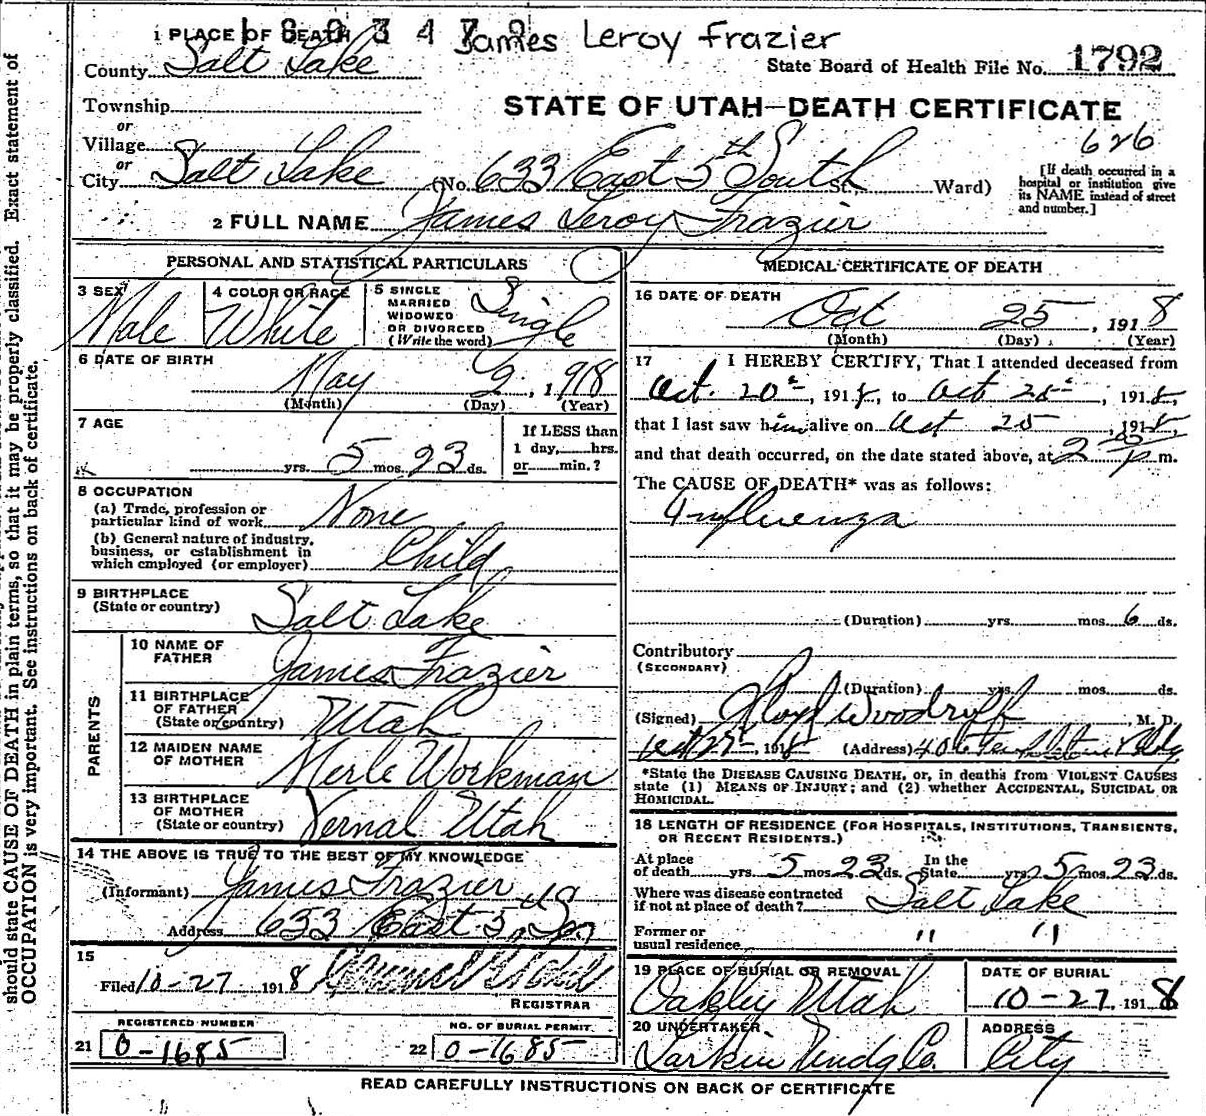 1 PLACE OF DEATH 1 8 0 3 4 7 9 James Leroy Frazier
County Salt Lake State Board of Health File No. 1792
Township
or STATE OF UTAH—DEATH CERTIFICATE
Village 626
or
City Salt Lake (No. 633 East 5th South St. Ward) [If death occurred in a hospital or institution give its NAME instead of street and number.]
2 FULL NAME James Leroy Frazier
PERSONAL AND STATISTICAL PARTICULARS
3 SEX Male
4 COLOR OR RACE White
5 SINGLE MARRIED WIDOWED OR DIVORCED (Write the word) Single
6 DATE OF BIRTH
May 2, 1918
(Month) (Day) (Year)
7 AGE
yrs. 5 mos. 23 ds.
If LESS than
1 day, hrs.
or min.?
8 OCCUPATION
(a) Trade, profession or
particular kind of work None
(b) General nature of industry,
business, or establishment in
which employed (or employer) Child
9 BIRTHPLACE
(State or country) Salt Lake
PARENTS
10 NAME OF
FATHER James Frazier
11 BIRTHPLACE
OF FATHER
(State or country) Utah
12 MAIDEN NAME
OF MOTHER Merle Workman
13 BIRTHPLACE
OF MOTHER
(State or country) Vernal Utah
14 THE ABOVE IS TRUE TO THE BEST OF MY KNOWLEDGE
(Informant) James Frazier
Address 633 East 5th So
15
Filed 10-27 1918
REGISTRAR
REGISTERED NUMBER
21 0-1685
NO. OF BURIAL PERMIT
22 0-1685
MEDICAL CERTIFICATE OF DEATH
16 DATE OF DEATH
Oct 25, 1918
(Month) (Day) (Year)
17 I HEREBY CERTIFY, That I attended deceased from
Oct. 20, 1918, to Oct 25, 1918,
that I last saw him alive on Oct 25, 1918,
and that death occurred, on the date stated above, at 2 P m.
The CAUSE OF DEATH* was as follows:
Influenza
(Duration) yrs. mos. 6 ds.
Contributory
(SECONDARY)
(Duration) yrs. mos. ds.
(Signed) Woodruff, M. D.
Oct 27 1918 (Address)
*State the DISEASE CAUSING DEATH, or, in deaths from VIOLENT CAUSES
state (1) MEANS OF INJURY; and (2) whether ACCIDENTAL, SUICIDAL OR
HOMICIDAL.
18 LENGTH OF RESIDENCE (FOR HOSPITALS, INSTITUTIONS, TRANSIENTS,
OR RECENT RESIDENTS.)
At place of death yrs. 5 mos. 23 ds. In the State yrs. 5 mos. 23 ds.
Where was disease contracted
if not at place of death? Salt Lake
Former or
usual residence " "
19 PLACE OF BURIAL OR REMOVAL
Oakley Utah
DATE OF BURIAL
10-27 1918
20 UNDERTAKER
Larkin Undg Co.
ADDRESS
City
READ CAREFULLY INSTRUCTIONS ON BACK OF CERTIFICATE
should state CAUSE OF DEATH in plain terms, so that it may be properly classified. Exact statement of
OCCUPATION is very important. See instructions on back of certificate.